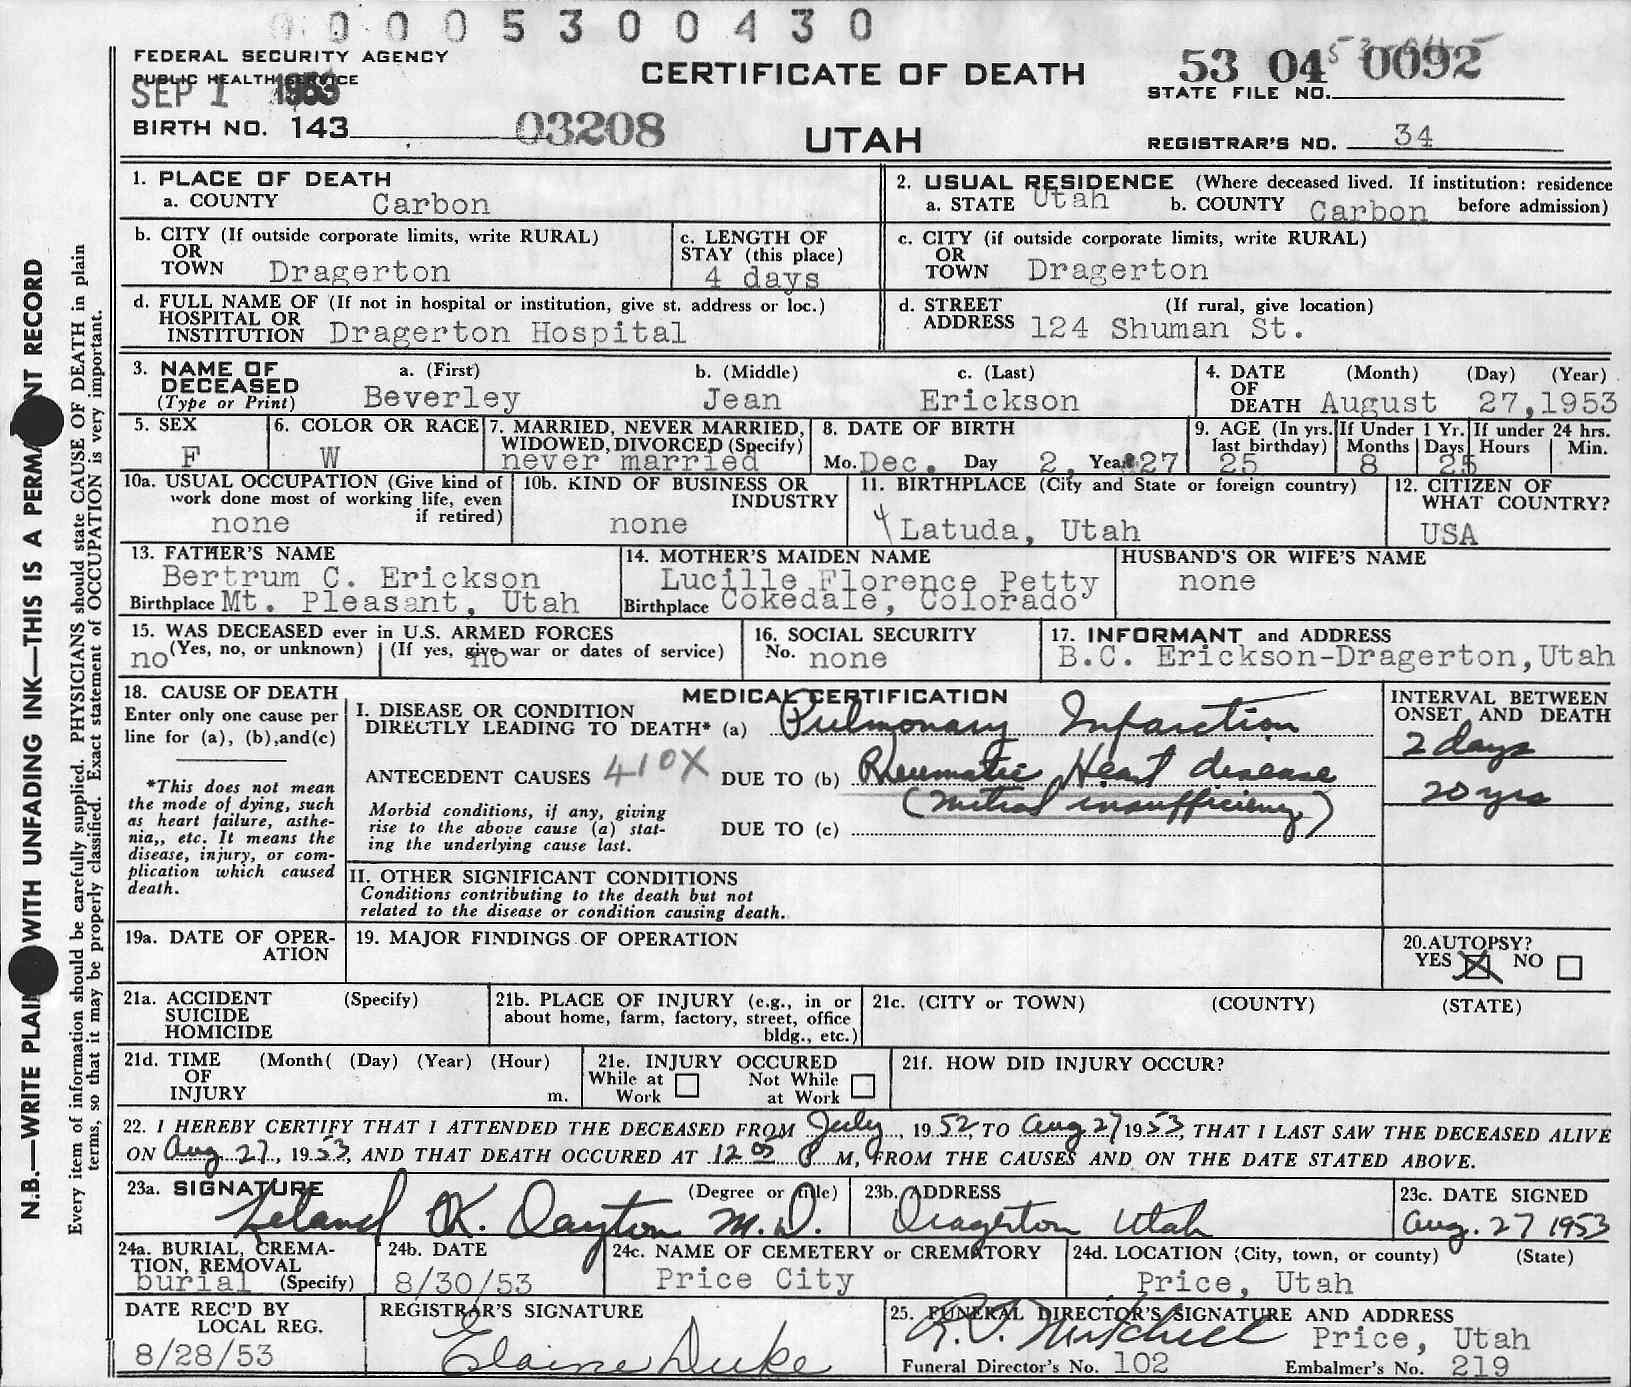 0 0 0 5 3 0 0 4 3 0
FEDERAL SECURITY AGENCY
PUBLIC HEALTH SERVICE
SEP 1 1953
CERTIFICATE OF DEATH
53 04 0092
STATE FILE NO.
BIRTH NO. 143
03208
UTAH
REGISTRAR'S NO. 34
1. PLACE OF DEATH
a. COUNTY Carbon
2. USUAL RESIDENCE (Where deceased lived. If institution: residence before admission)
a. STATE Utah b. COUNTY Carbon
b. CITY (If outside corporate limits, write RURAL)
OR
TOWN Dragerton
c. LENGTH OF
STAY (this place)
4 days
c. CITY (if outside corporate limits, write RURAL)
OR
TOWN Dragerton
d. FULL NAME OF (If not in hospital or institution, give st. address or loc.)
HOSPITAL OR
INSTITUTION Dragerton Hospital
d. STREET (If rural, give location)
ADDRESS 124 Shuman St.
3. NAME OF
DECEASED
(Type or Print)
a. (First) b. (Middle) c. (Last)
Beverley Jean Erickson
4. DATE (Month) (Day) (Year)
OF
DEATH August 27,1953
5. SEX
F
6. COLOR OR RACE
W
7. MARRIED, NEVER MARRIED,
WIDOWED, DIVORCED (Specify)
never married
8. DATE OF BIRTH
Mo. Dec. Day 2, Year 27
9. AGE (In yrs. last birthday)
25
If Under 1 Yr.
Months Days
8 25
If under 24 hrs.
Hours Min.
10a. USUAL OCCUPATION (Give kind of
work done most of working life, even
if retired)
none
10b. KIND OF BUSINESS OR
INDUSTRY
none
11. BIRTHPLACE (City and State or foreign country)
4 Latuda, Utah
12. CITIZEN OF
WHAT COUNTRY?
USA
13. FATHER'S NAME
Bertrum C. Erickson
Birthplace Mt. Pleasant, Utah
14. MOTHER'S MAIDEN NAME
Lucille Florence Petty
Birthplace Cokedale, Colorado
HUSBAND'S OR WIFE'S NAME
none
15. WAS DECEASED ever in U.S. ARMED FORCES
(Yes, no, or unknown) (If yes, give war or dates of service)
no no
16. SOCIAL SECURITY
No. none
17. INFORMANT and ADDRESS
B.C. Erickson-Dragerton,Utah
18. CAUSE OF DEATH
Enter only one cause per
line for (a), (b),and(c)
*This does not mean
the mode of dying, such
as heart failure, asthe-
nia,, etc. It means the
disease, injury, or com-
plication which caused
death.
MEDICAL CERTIFICATION
I. DISEASE OR CONDITION
DIRECTLY LEADING TO DEATH* (a) Pulmonary Infarction
ANTECEDENT CAUSES 410X DUE TO (b) Rheumatic Heart disease
(mitral insufficiency)
Morbid conditions, if any, giving
rise to the above cause (a) stat-
ing the underlying cause last.
DUE TO (c)
INTERVAL BETWEEN
ONSET AND DEATH
2 days
20 yrs
II. OTHER SIGNIFICANT CONDITIONS
Conditions contributing to the death but not
related to the disease or condition causing death.
19a. DATE OF OPER-
ATION
19. MAJOR FINDINGS OF OPERATION
20.AUTOPSY?
YES X NO
21a. ACCIDENT (Specify)
SUICIDE
HOMICIDE
21b. PLACE OF INJURY (e.g., in or
about home, farm, factory, street, office
bldg., etc.)
21c. (CITY or TOWN) (COUNTY) (STATE)
21d. TIME (Month( (Day) (Year) (Hour)
OF
INJURY m.
21e. INJURY OCCURED
While at Work Not While at Work
21f. HOW DID INJURY OCCUR?
22. I HEREBY CERTIFY THAT I ATTENDED THE DECEASED FROM July, 1952, TO Aug 27 1953, THAT I LAST SAW THE DECEASED ALIVE
ON Aug 27, 1953, AND THAT DEATH OCCURED AT 12 05 P M, FROM THE CAUSES AND ON THE DATE STATED ABOVE.
23a. SIGNATURE (Degree or title)
Leland K. Dayton M.D.
23b. ADDRESS
Dragerton Utah
23c. DATE SIGNED
Aug. 27 1953
24a. BURIAL, CREMA-
TION, REMOVAL
burial (Specify)
24b. DATE
8/30/53
24c. NAME OF CEMETERY or CREMATORY
Price City
24d. LOCATION (City, town, or county) (State)
Price, Utah
DATE REC'D BY
LOCAL REG.
8/28/53
REGISTRAR'S SIGNATURE
Elaine Duke
25. FUNERAL DIRECTOR'S SIGNATURE AND ADDRESS
Mitchell Price, Utah
Funeral Director's No. 102 Embalmer's No. 219
N.B.—WRITE PLAINLY WITH UNFADING INK—THIS IS A PERMANENT RECORD
Every item of information should be carefully supplied. PHYSICIANS should state CAUSE OF DEATH in plain
terms, so that it may be properly classified. Exact statement of OCCUPATION is very important.